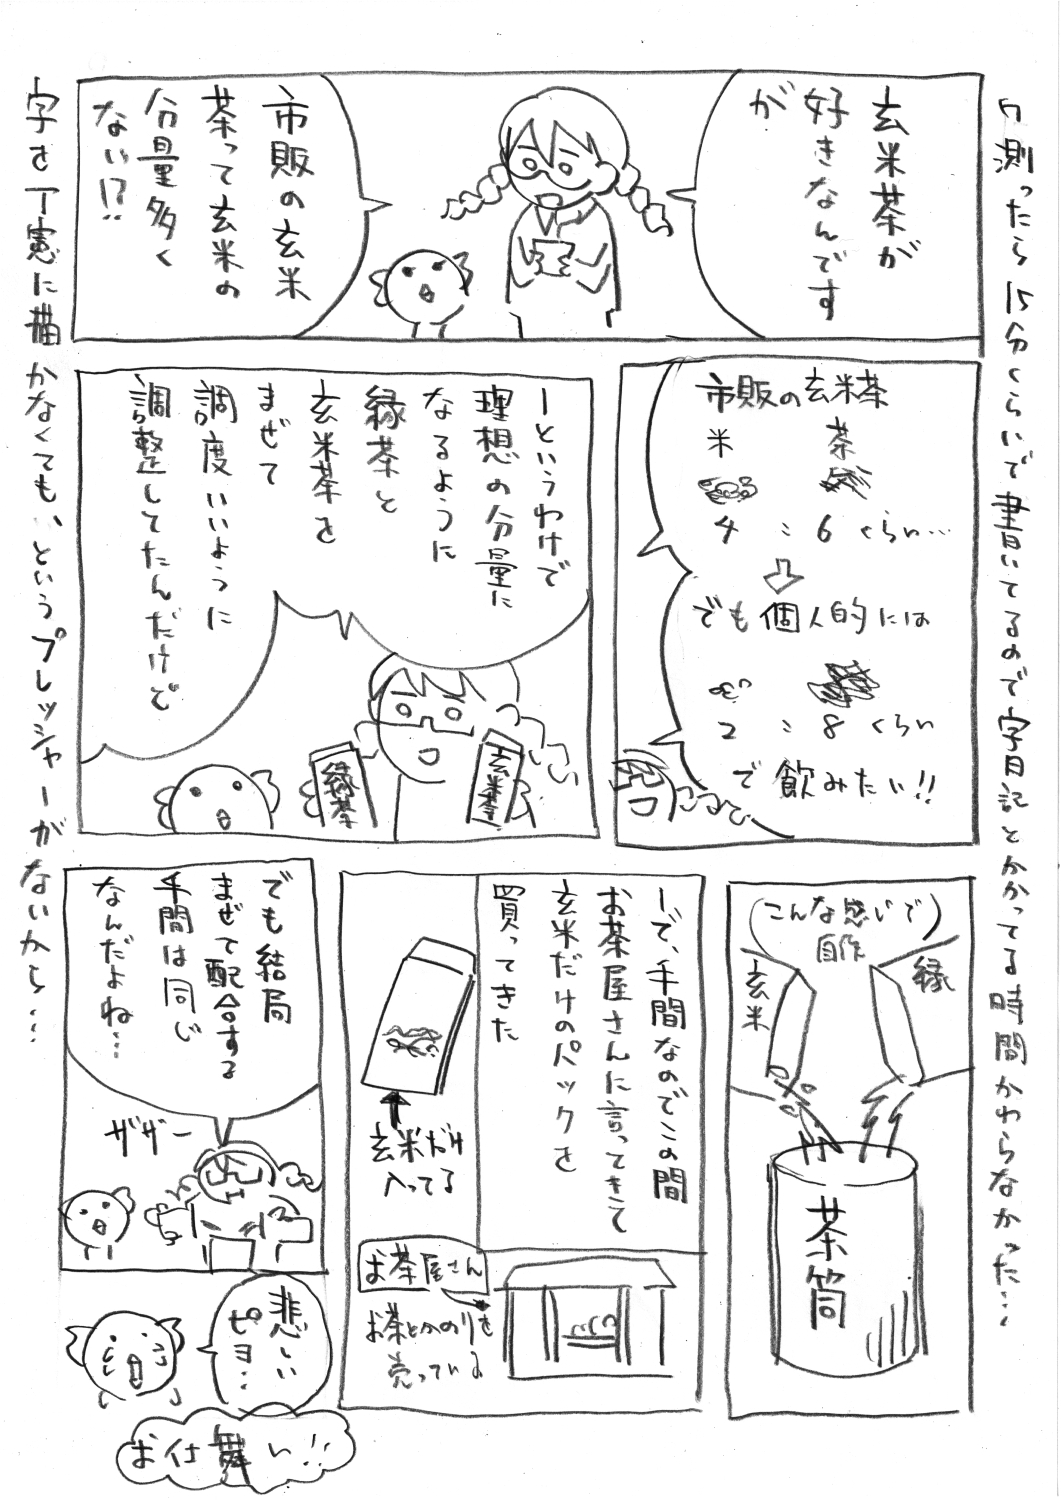 測ったら15分くらいで書いてるので字日記とかかってる時間かわらなかった…
玄米茶が
好きなんです
が
市販の玄米
茶って玄米の
分量多く
ない!?
市販の玄米茶
米 茶
4:6くらい…
でも個人的には
2:8くらい
で飲みたい!!
ーというわけで
理想の分量に
なるように
緑茶と
玄米茶を
まぜて
調度いいように
調整してたんだけど
緑茶
玄米茶
(こんな感じで)
自作
緑
玄米
茶筒
ーで、手間なのでこの間
お茶屋さんに言ってきて
玄米だけのパックを
買ってきた
玄米だけ
入ってる
お茶屋さん
お茶とかのりを
売っている
でも結局
まぜて配合する
手間は同じ
なんだよね…
ザザー
悲しい
ピヨ…
お仕舞い!!
字を丁寧に描かなくてもいいというプレッシャーがないから…